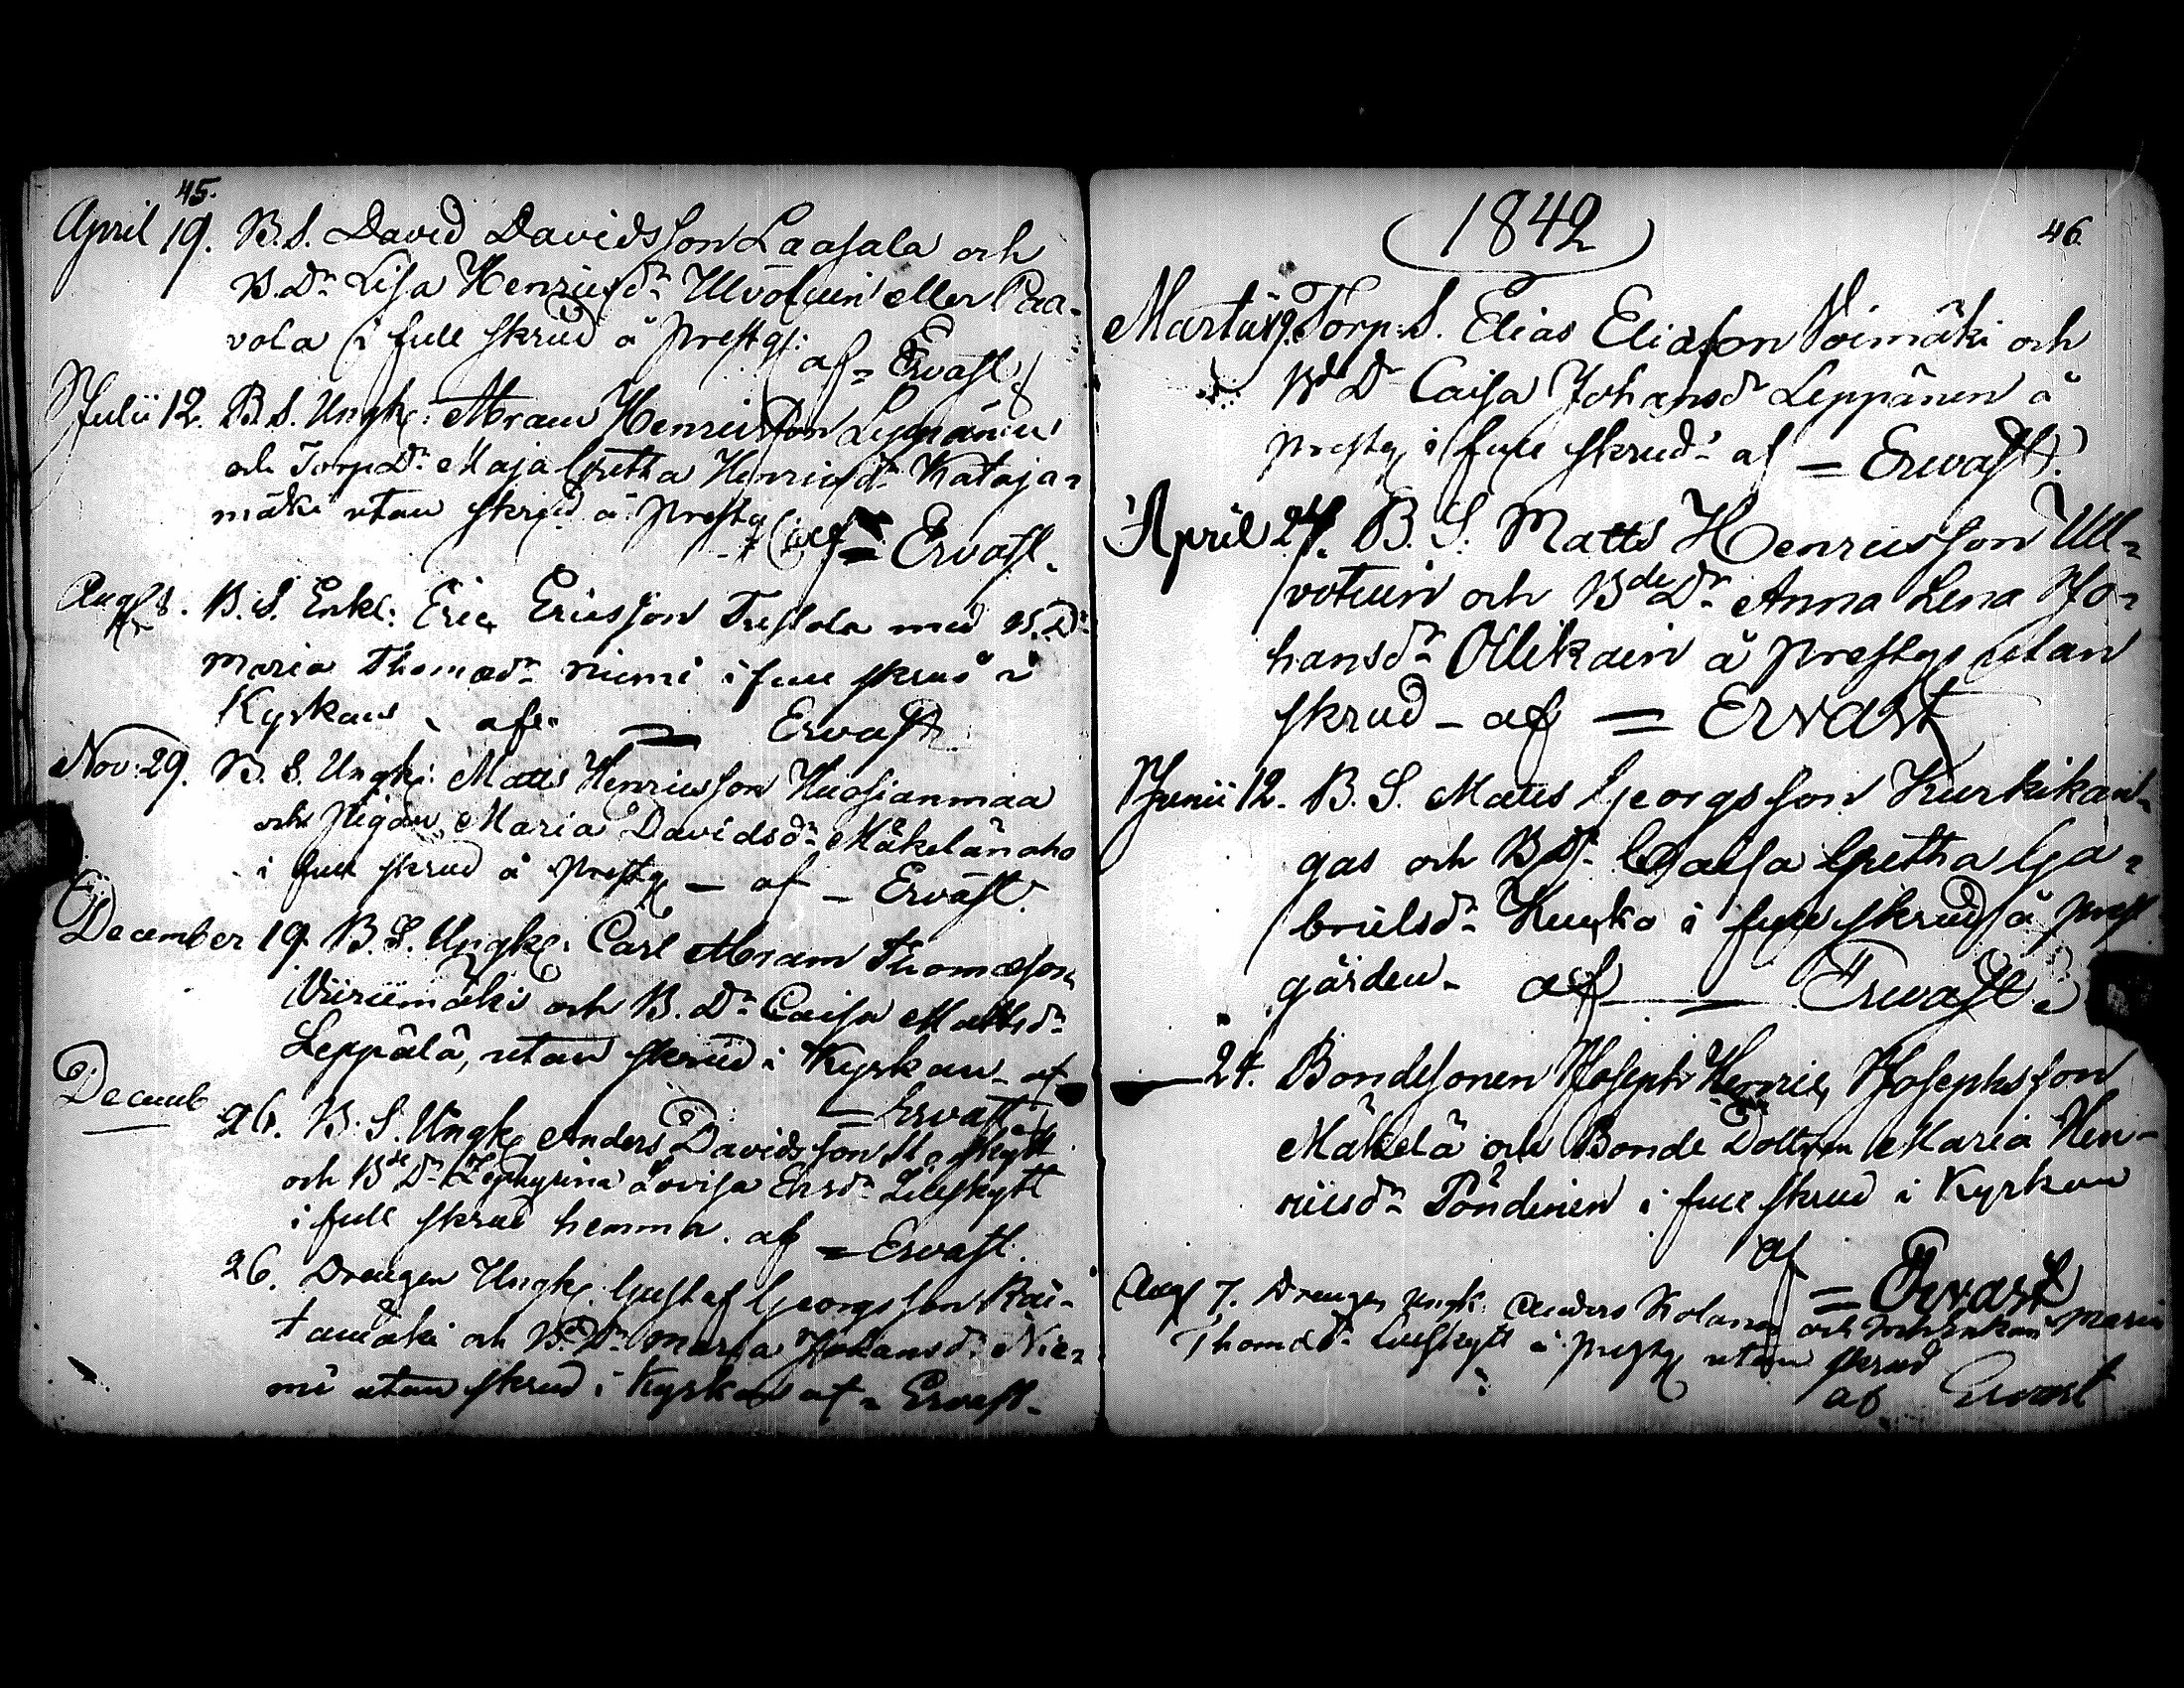 45.
April 19. B.S. David Davidsson Laasala och
B.Dr Lisa Henricsdr Ulvotuin eller Paa-
vola i full skrud å prestg:
af = Ervast
Julii 12. B.S. Ungk: Abram Henricsson Leppänen
och Torp.Dr Maja Gretha Henricsdr Kataja-
mäki utan skrud å prestg
af = Ervast.
Aug 8. B.S. Enkl: Eric Ericsson Tustola med B.Dr
Maria Thomædr Niemi i full skrud i
Kyrkan af = Ervast
Nov: 29. B.S. Ungk: Matts Henricsson Huosianmaa
och Pigan Maria Davidsdr Mäkelänaho
i full skrud å prestg – af – Ervast.
December 19. B.S. Ungk: Carl Abram Thomæson
Viiriimäki och B.Dr Caisa Mattsdr
Leppälä, utan skrud i Kyrkan – af
= Ervast
Decemb 26. B.S. Ungk Anders Davidsson
och Bde Dr Zephyrina Lovisa Ersdr Lillskytt
i full skrud hemma. af = Ervast.
26. Drengen Ungk: Gustaf Georgsson Rai-
tamäki och B.Dr Maria Johansdr Nie-
mi utan skrud i Kyrkan af = Ervast.
1842
46.
Martii 19. Torp:S. Elias Eliason Soimäki och
Bd Dr Caisa Johansdr Leppänen å
prestg i full skrud af = Ervast.
April 24. B.S. Matts Henricsson Ull-
votuin och Bde Dr Anna Lena Jo-
hansdr Ollikain å prestg utan
skrud – af = Ervast
Junii 12. B.S. Matts Georgsson Kurkikan-
gas och B.Dr Caisa Gretha Ga-
brielsdr i full skrud å prest
gården – af = Ervast
24. Bondesonen Joseph Henric Josephsson
Mäkelä och Bonde Dottren Maria Hen-
ricsdr Pöndinen i full skrud i Kyrkan
af = Ervast
Aug 7. Drengen Ungk: Anders Kolamaa och Enkan Maria
Thomædr Lillskytt å prestg utan skrud
af Ervast